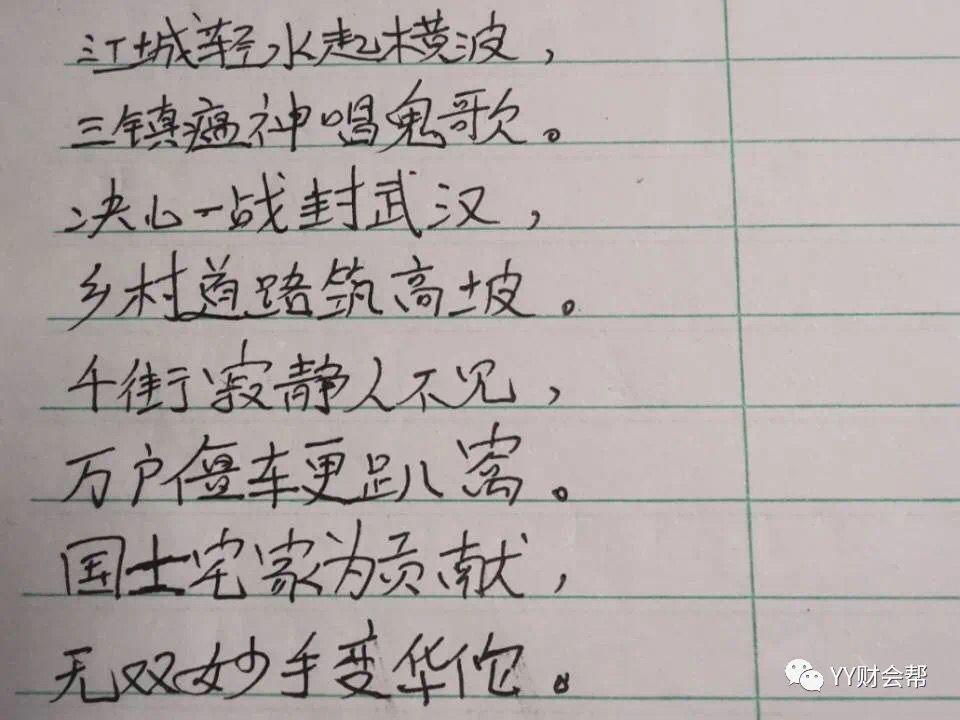 江城轻水起横波，
三镇瘟神唱鬼歌。
决心一战封武汉，
乡村道路筑高坡。
千街寂静人不见，
万户僵车更趴窝。
国士宅家为贡献，
无双妙手变华佗。
YY财会帮